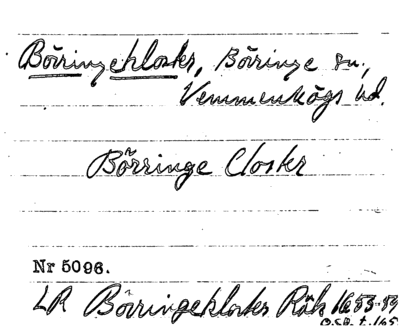 Börringekloster, Börringe sn.,
Vemmenhögs hd.
Börringe Closter
Nr 5096.
LR Börringeklosters Räk 1653-54